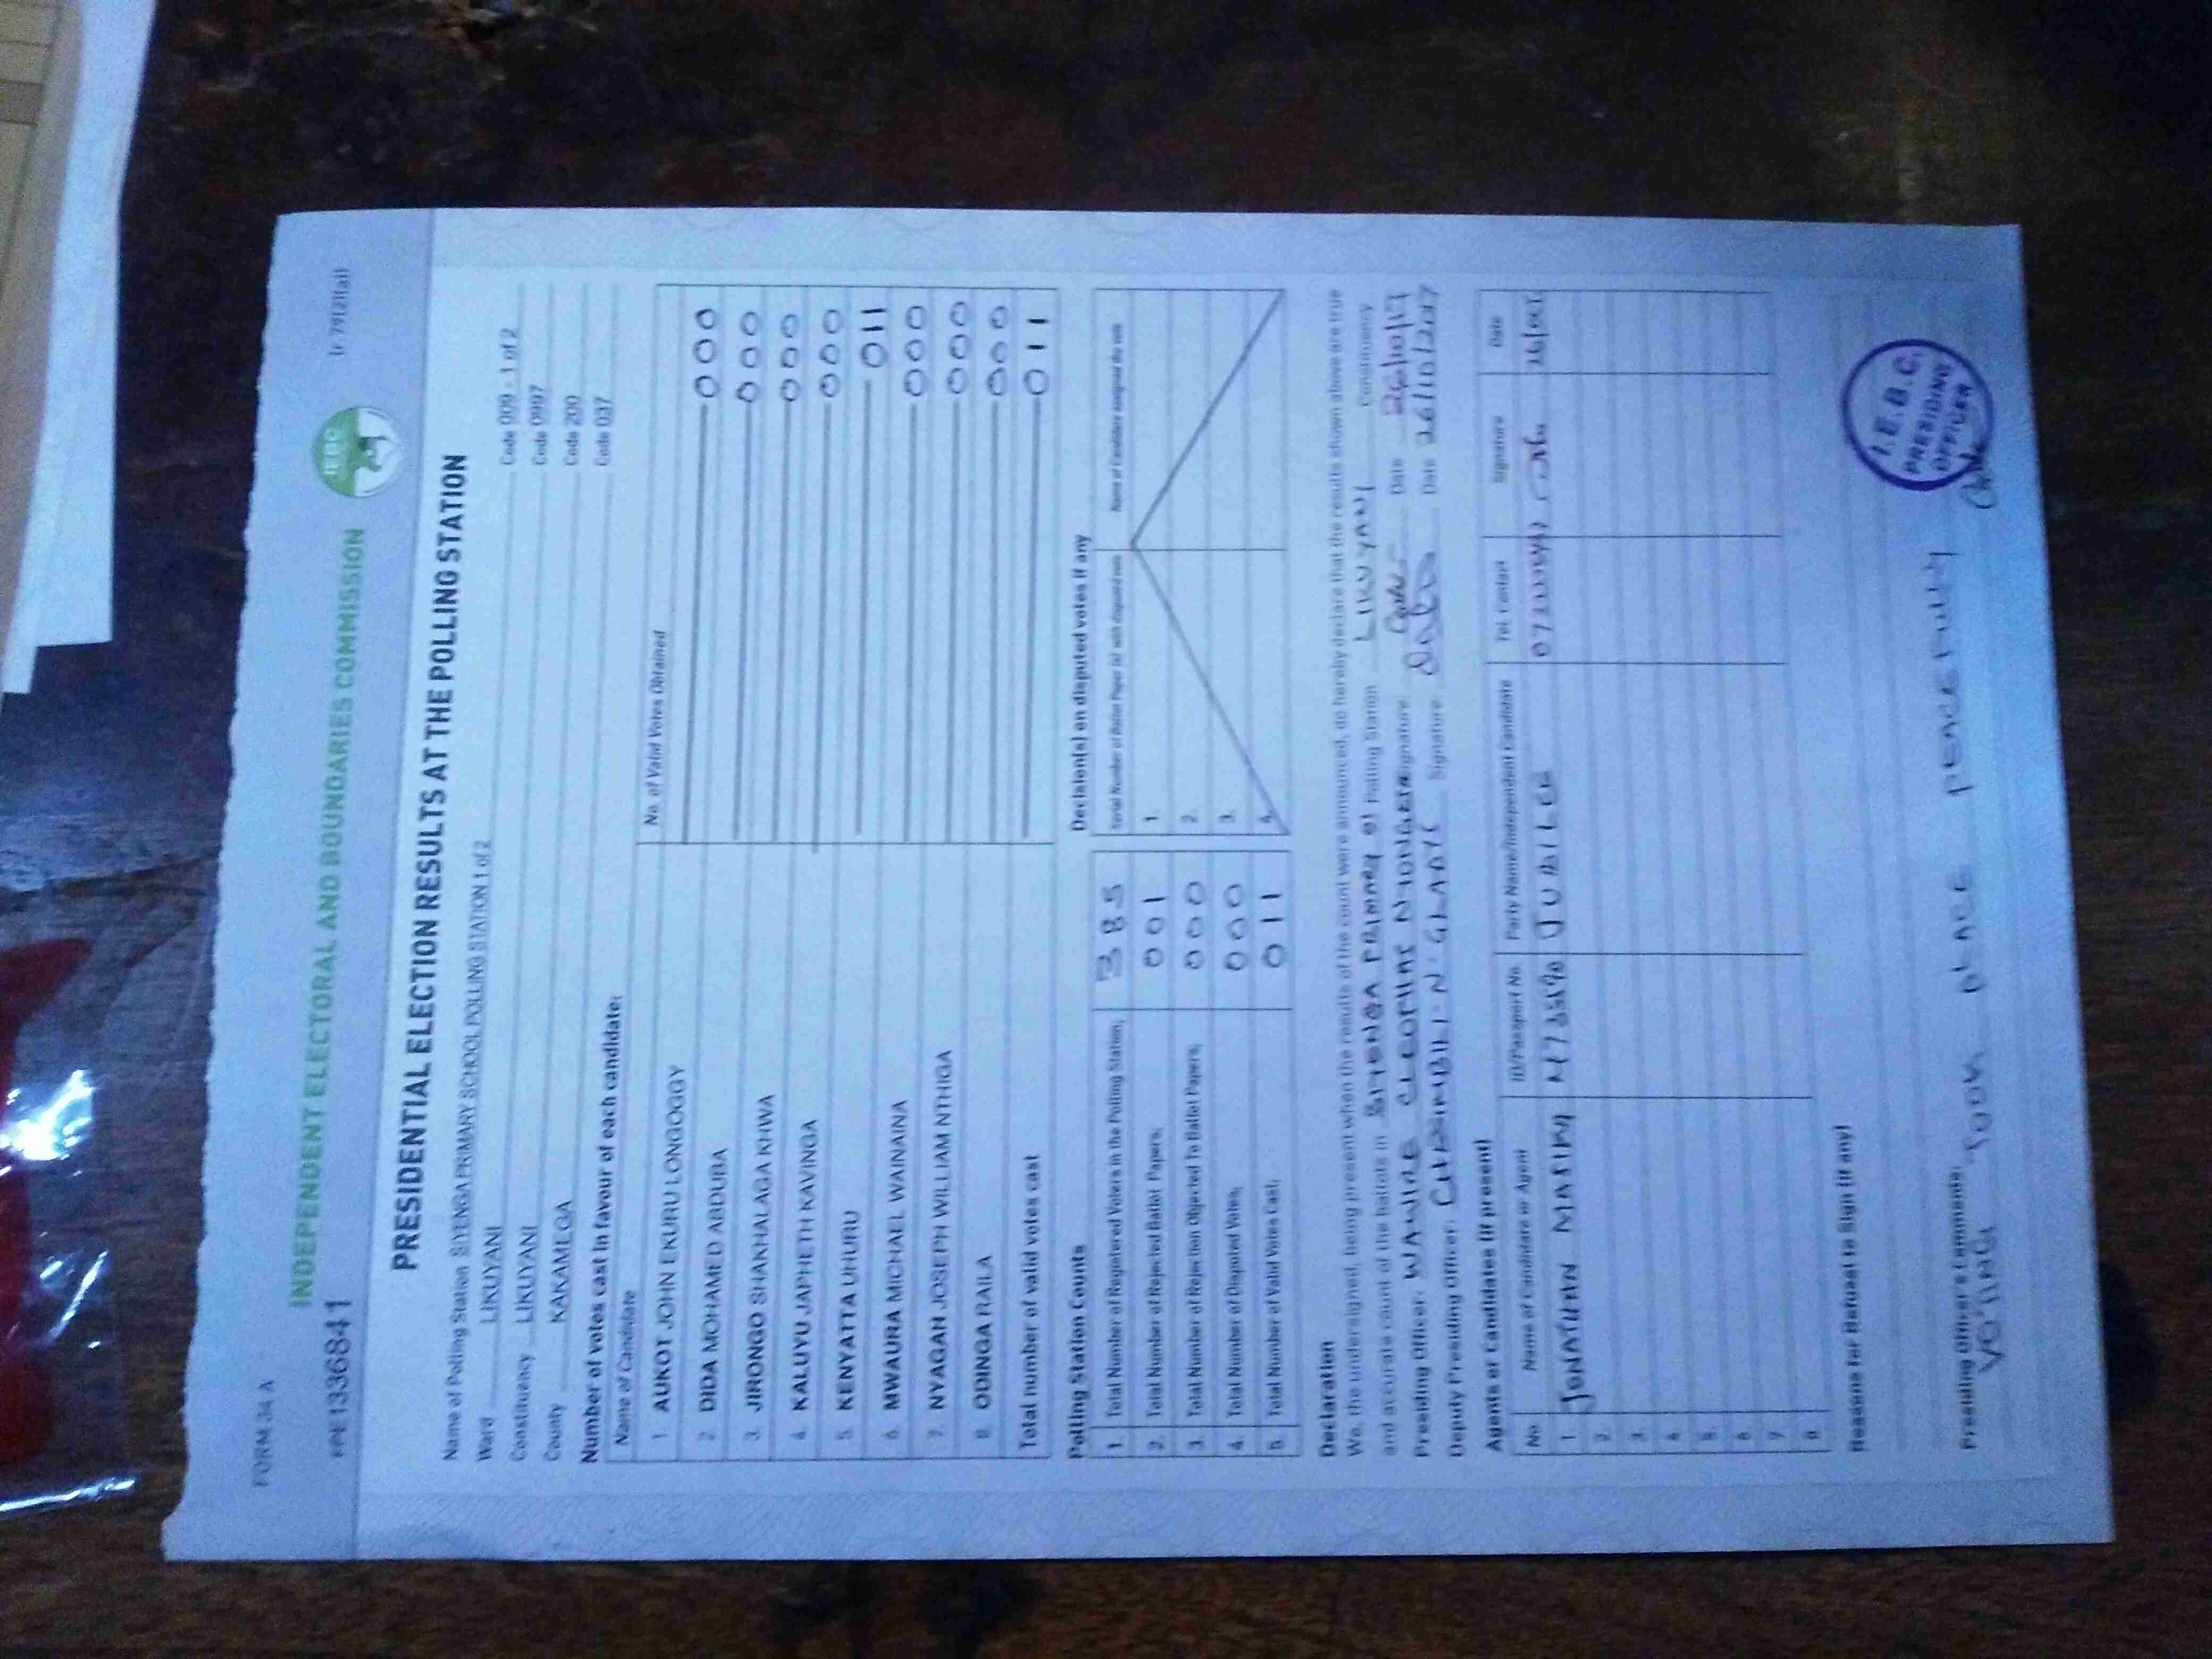 FORM 34 A
INDEPENDENT ELECTORAL AND BOUNDARIES COMMISSION
IEBC
PRESIDENTIAL ELECTION RESULTS AT THE POLLING STATION
Name of Polling Station SIYENGA PRIMARY SCHOOL POLLING STATION 1 of 2 Code 009 - 1 of 2
Ward LIKUYANI Code 0997
Constituency LIKUYANI Code 200
County KAKAMEGA Code 037
Number of votes cast in favour of each candidate:
Name of Candidate No. of Valid Votes Obtained
1. AUKOT JOHN EKURU LONGOGGY 000
2. DIDA MOHAMED ABDUBA 000
3. JIRONGO SHAKHALAGA KHWA 000
4. KALUYU JAPHETH KAVINGA 000
5. KENYATTA UHURU 011
6. MWAURA MICHAEL WAINAINA 000
7. NYAGAH JOSEPH WILLIAM NTHIGA 000
8. ODINGA RAILA 000
Total number of valid votes cast 011
Polling Station Counts
1. Total Number of Registered Voters in the Polling Station; 385
2. Total Number of Rejected Ballot Papers; 001
3. Total Number of Rejection Objected To Ballot Papers; 000
4. Total Number of Disputed Votes; 000
5. Total Number of Valid Votes Cast; 011
Decision(s) on disputed votes if any
Serial Number of Ballot Paper (s) with disputed vote Name of Candidate assigned the vote
1.
2.
3.
4.
Declaration
We, the undersigned, being present when the results of the count were announced, do hereby declare that the results shown above are true
and accurate count of the ballots in PRIMARY Polling Station LIKUYANI Constituency
Presiding Officer: Signature: Date 26/10/17
Deputy Presiding Officer: Signature: Date 26/10/2017
Agents or Candidates (if present)
No. Name of Candidate or Agent ID/Passport No. Party Name/Independent Candidate Tel. Contact Signature Date
1. JUBILEE
2.
3.
4.
5.
6.
7.
8.
Reasons for Refusal to Sign (if any)
Presiding Officer's Comments:
VOTING TOOK PLACE PEACEFULLY
I.E.B.C.
PRESIDING
OFFICER